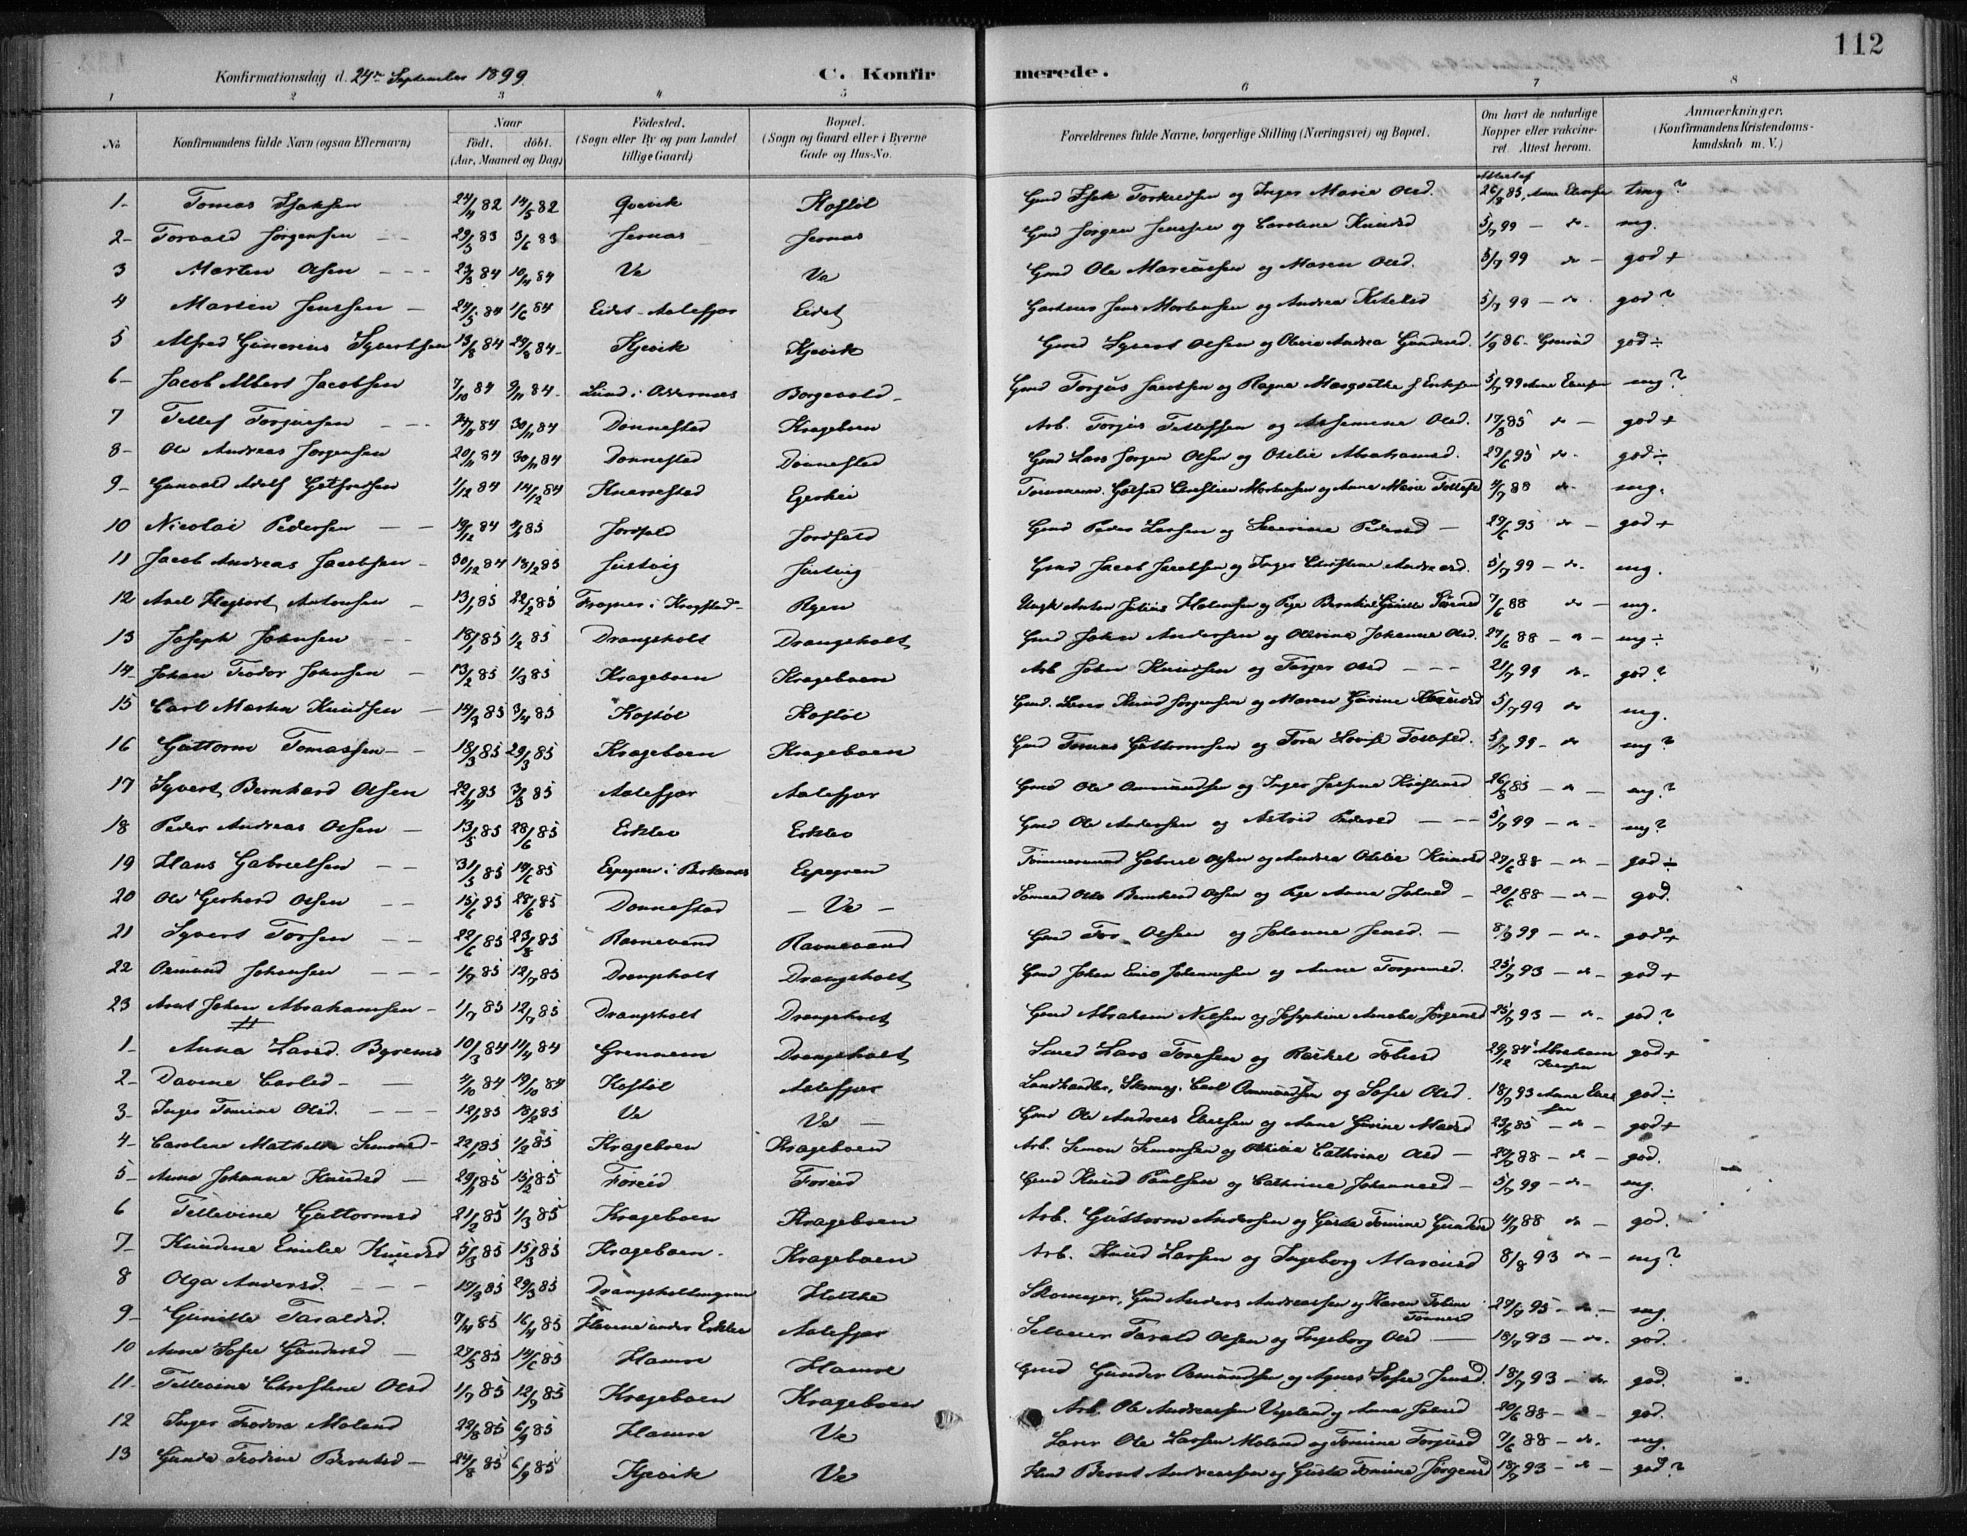 112
Konfirmationsdag d. 24de September 1899.
C. Konfirmerede.
1 2 3 4 5 6 7 8
No
Konfirmandens fulde Navn (ogsaa Efternavn)
Naar
födt. döbt.
(Aar, Maaned og Dag)
Födested.
(Sogn eller By og paa Landet tillige Gaard)
Bopæl.
(Sogn og Gaard eller i Byerne Gade og Hus-No.
Forældrenes fulde Navne, borgerlige Stilling (Næringsvei) og Bopæl.
Om havt de naturlige Kopper eller vakcineret. Attest herom.
Anmærkninger.
(Konfirmandens Kristendomskundskab m. V.)
1- Tomas Isaksen 24/4 82 14/5 82 Qvevik Kostöl Gmd Isak Torkelsen og Inger Marie Olsd. 26/8 85, Anne Ebersen tmg?
2- Torvald Jørgensen 29/3 83 3/6 83 Jernas Jernas Gmd Jørgen Jenssen og Caroline Knudsd 5/7 99 - do - mg.
3 Morten Olsen 23/3 84 10/4 84 Ve Ve Gmd Ole Marcussen og Maren Olsd. 5/7 99 do - god +
4 Martin Jenssen - 24/5 84 1/6 84 Eidet - Aalefjær Eidet Gaardmd Jens Mortensen og Andrea Ketelsd 5/7 99 - do. god?
5 Alfred Gunerius Syvertsen 13/8 84 29/8 84 Kjevik Kjevik Gmd Syvert Olsen og Olevia Andrea Gundersd. 1/9 86 god ÷
6- Jacob Albert Jacobsen 7/10 84 9/11 84 Lund i Oddernes Borgevold - Gmd Torjus Jacobsen og Ragna 5/7 99 Anne Ebersen mg?
7 Tellef Torjussen 30/11 84 Donnestad Krageboen Arb. Torjus Tellefsen og Assemine Olsd. 17/8 85 do - god +
8- Ole Andreas Jørgensen 20/11 84 30/11 84 Donnestad Donnestad Gmd Lars Jørgen Olsen og Otelie Abrahamsd. 27/6 95 do - god ÷
9- Gunvald Adolf Gotfredsen 1/12 84 14/12 84 Knarrestad Egerhei Tømmerm. Gotfred Christian Mortensen og Anne Marie Tellefsd 4/7 88 do. mg.
10 Nicolai Pedersen 19/12 84 85 Jordfald Jordfald Gmd Peder Larsen og Severine Pedersd 27/6 95 do - god +
11 Jacob Andreas Jacobsen 30/12 84 18/2 85 Justvig Justvig Gmd Jacob Jacobsen og Inger Christine Andreasd. 5/7 99 - do - mg.
12 Axel Antonsen 13/1 85 22/2 85 Frogner i Krogstad Ryen Ungk Anton Julius 7/6 88 do - mg.
13 Joseph Johnsen 18/1 85 1/2 85 Drangsholt Drangsholt Gmd John Andersen og Olevine Johanne Olsd. 27/6 88 - do - mg ÷
14- Johan Teodor Johnsen 13/2 85 1/3 85 Krageboen Krageboen Arb John Knudsen og Torjer Olsd 21/7 99 do - god?
15 Carl Martin Knudsen 14/3 85 3/4 85 Kostöl Kostöl Gmd. Knud Jørgensen og Maren Gurine 5/7 99 do mg.
16 Guttorm Tomassen 18/3 85 29/3 85 Krageboen Krageboen Gmd Tomas Guttormsen og Tora Lovise Tellefsd. 5/7 99 - do mg?
17 Syvert Bernhard Olsen 22/4 85 3/5 85 Aalefjær Aalefjær Gmd Ole Osmundsen og Inger Josefine Kristensd 26/8 85 - do - mg?
18 Peder Andreas Olsen 13/5 85 28/6 85 Erklev Erklev Gmd Ole Andersen og Astrid Pedersd 5/7 99 - do - mg?
19 Hans Gabrielsen 31/5 85 14/6 85 Espegren i Birkenes Espegren Tømmermand Gabriel Olsen og Andrea Otilie Knudsd 27/6 88 - do - god ÷
20 Ole Gerhard Olsen 15/6 85 28/6 85 Donnestad - Ve - Sømand Ole Bernhard Olsen og Pge Anna Johnsd - 20/6 88 - do - god.
21 Syvert Torsen 22/6 85 23/8 85 Ravnevand Ravnevand Gmd Tor Olsen og Johanne Jensd. - 8/9 99 - do - god +
22 Osmund Johansen 1/7 85 12/7 85 Drangsholt Drangsholt Gmd Johan Johannesen og Anne Torgrimsd. 25/7 93 - do - god +
23 Arnt Johan Abrahamsen 1/7 85 12/7 85 Drangsholt Drangsholt Gmd Abraham Nilsen og Josephine Amalie Jørgensd 25/7 93 - do - god?
1- Anna Larsd. Byremo 10/3 84 14/4 84 Grennem Drangsholt Smed Lars Toresen og Rakel Tobiasd 29/12 84 Abraham god +
2- Davine Carlsd 4/10 84 19/10 84 Kostöl Aalefjær Landhandler, Skomag. Carl Osmundsen og Sofie Olsd. 18/7 93 Anne Ebersen god ÷
3- Inger Tomine Olsd. 12/1 85 18/2 85 Ve Ve - Gmd Ole Andreas Ebersen og Anne Gurine Madsd 25/8 85 - do - god +
4- Caroline Mathilde Simonsd 22/1 85 1/2 85 Krageboen Krageboen Arb. Simon Simonsen og Otilie Cathrine Olsd - 88 - do - god.
5- Anna Johanne Knudsd 29/1 85 15/2 85 Foreid Foreid Gmd Knud Paulsen og Cathrine Johannesd - 5/7 99 - do - mg.
6 Tellevine Guttormsd 21/2 85 1/3 85 Krageboen Krageboen Arb. Guttorm Andersen og Guste Tomine Gundersd 4/7 88 do - god.
7- Knudine Emilie Knudsd 5/3 85 15/3 85 Krageboen Krageboen Arb. Knud Larsen og Ingeborg Marcusd 8/8 93 do - mg?
8 Olga Andersd. 19/3 85 29/3 85 Holthe Skomager, Gmd Anders Andreassen og Karen Tobine Tønnesd 27/7 95 - do - mg.
9- Gunille Taraldsd. 7/4 85 16/4 85 Heiene under Erklev Aalefjær Selveier Tarald Olsen og Ingeborg Olsd 18/7 93 - do - god.
10 Anna Sofie Gundersd 27/5 85 14/6 85 Hamre Hamre Gmd Gunder Osmundsen og Agnes Sofie Jensd. 18/7 93 - do. god.
11- Tellevine Christine Olsd 1/7 85 12/7 85 Krageboen Krageboen Arb. Ole Andreassen Vegeland og Anna Johnsd 20/6 88 - do - god.
12 Inger Teodora Moland 29/8 85 6/9 85 Hamre Ve Lærer Ole Larsen Moland og Tomine Torjusd 7/6 88 - do. mg.
13 Gunda Teodine Berntsd - 24/8 85 6/9 85 Kjevik Ve Gmd Bernt Andreassen og Guste Tomine Jørgensd 18/7 93 - do - god?